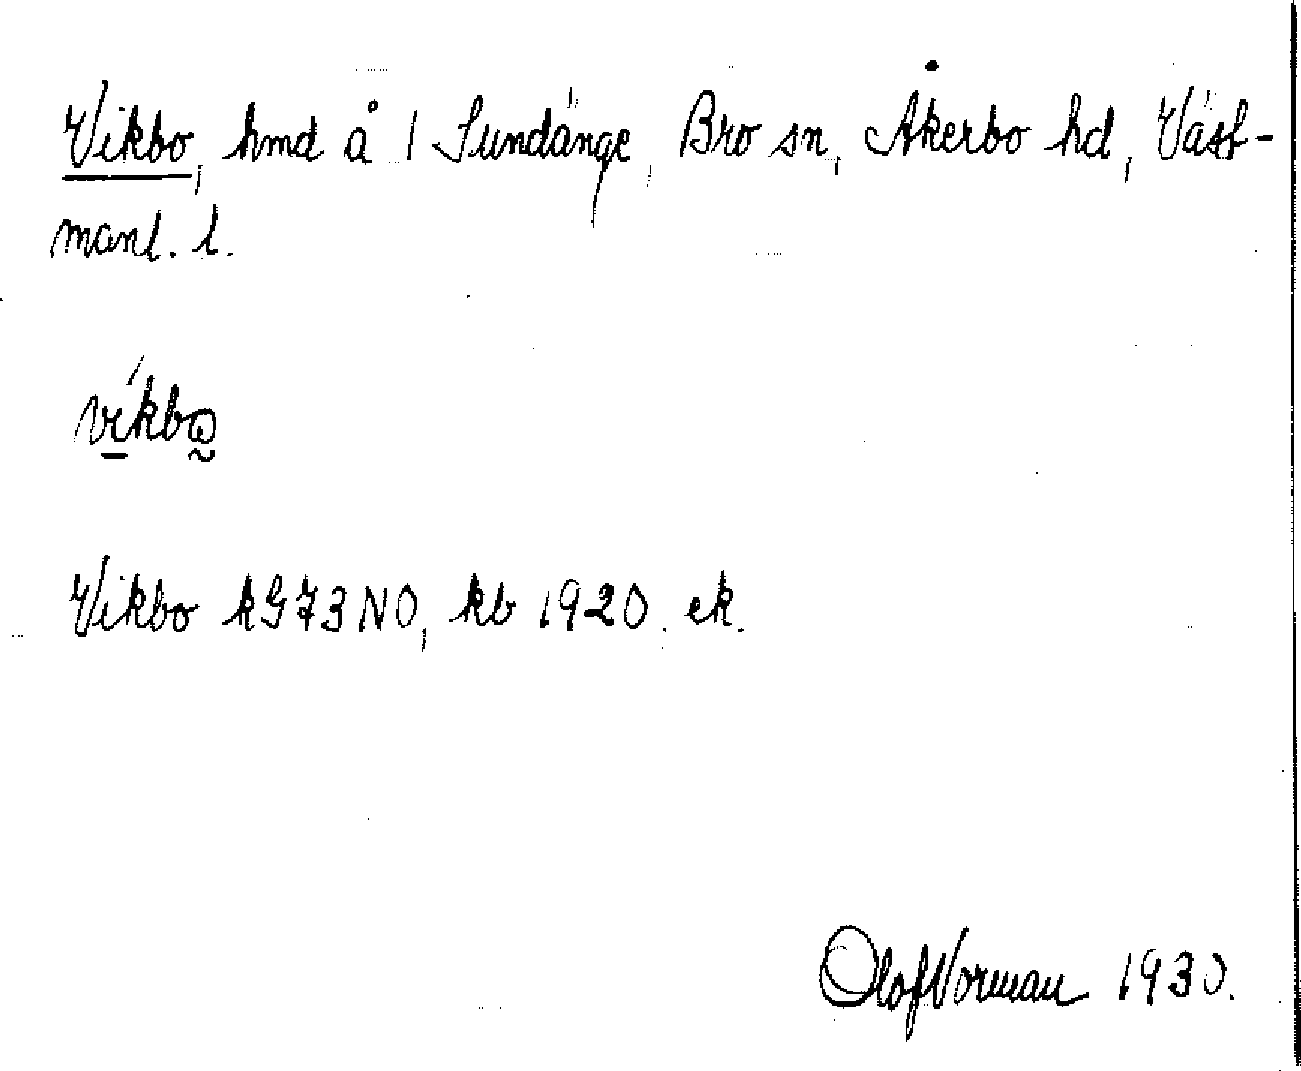 Vikbo, hmd å 1 Sundänge, Bro sn, Åkerbo hd, Väst-
manl. l.
víkbo
Vikbo kG73NO, kb 1920. ek.
Olof Norman 1930.